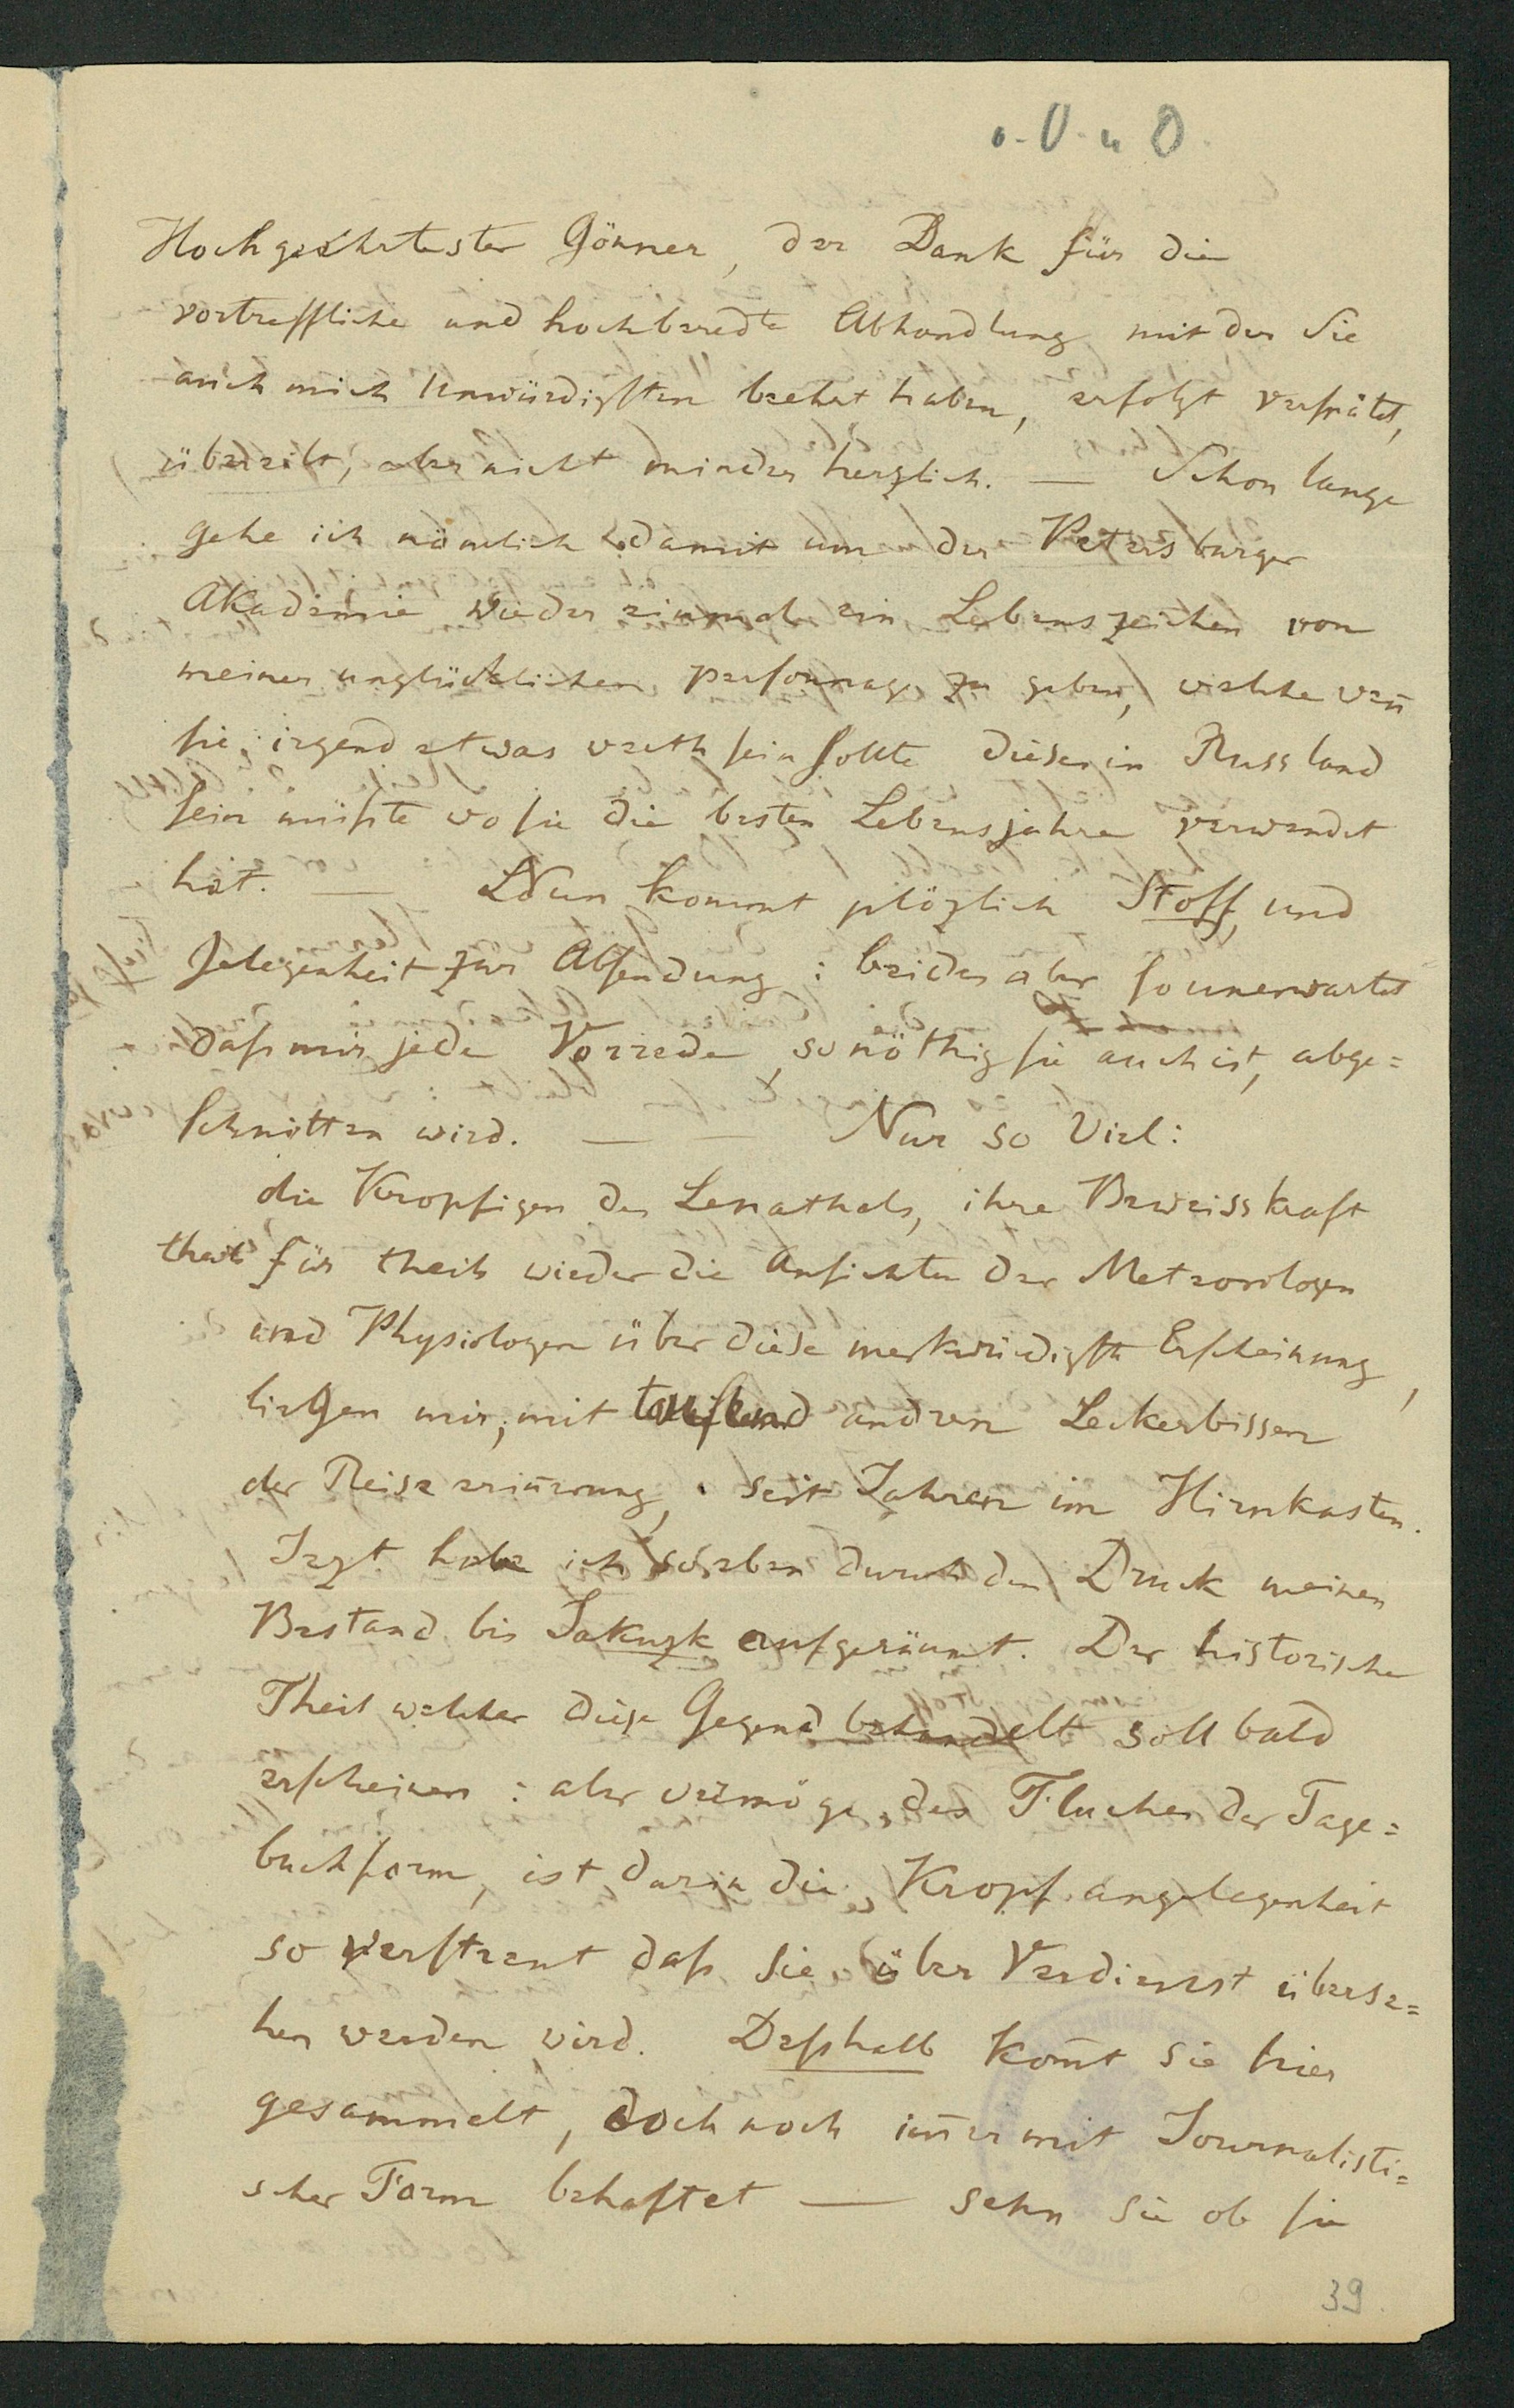 o. O. u O.
Hochgeehrtester Gönner, der Dank für die
vortreffliche und hochberedte Abhandlung mit der Sie
auch mich Unwürdigsten beehrt haben, erfolgt verspätet,
übereilt, aber nicht minder herzlich. — Schon lange
gehe ich nämlich damit um der Petersburger
Akademie wieder einmal ein Lebenszeichen von
meiner unglücklichen personnage zu geben, welche wen̅
sie irgend etwas werth sein sollte dieser in Russland
sein müßte wo sie die besten Lebensjahre verwendet
hat. — Nun kommt plözlich Stoff und
Gelegenheit zur Absendung: beides aber so unerwartet
daß mir jede Vorrede, so nöthig sie auch ist, abge=
schnitten wird. — — Nur so Viel:
die Kropfigen des Lenathals, ihre Beweisskraft
theils für theils wieder die Ansichten der Meteorologen
und Physiologen über diese merkwürdigste Erscheinung,
liegen mir, mit tausend andren Leckerbissen
der Reiseerin̅erung, seit Jahren im Hirnkasten.
Jezt habe ich soeben durch den Druck meinen
Bestand bis Jakuzk aufgeräumt. Der historische
Theil welcher diese Gegend behandelt soll bald
erscheinen: aber vermöge des Fluches der Tage=
buchform, ist darin die Kropfangelegenheit
so verstreut daß sie über Verdienst überse=
hen werden wird. Deßhalb kom̅t sie hier
gesammelt, doch noch im̅er mit Journalisti=
scher Form behaftet — sehn Sie ob sie
39